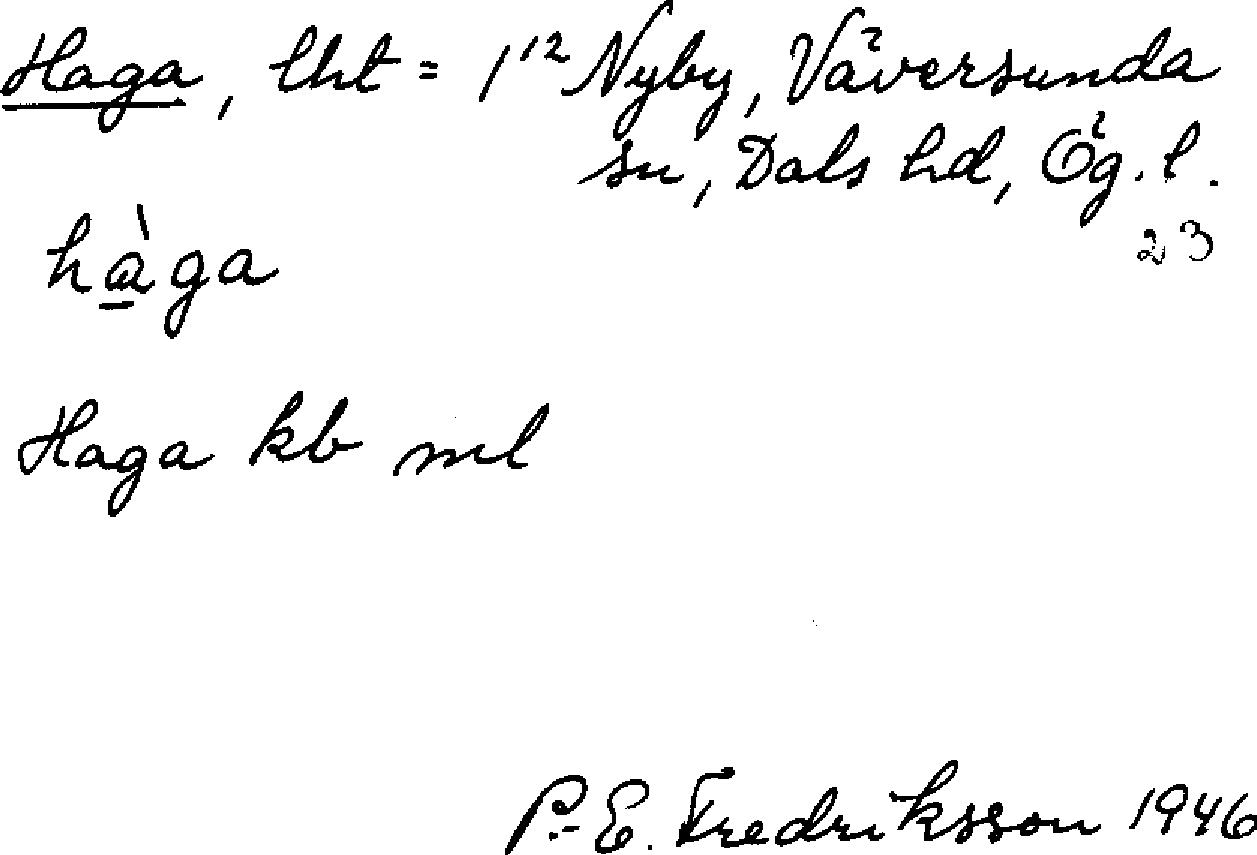 Haga, lht = 1¹² Nyby, Väversunda
sn, Dals hd, Ög. l.
23
hà̲ga
Haga kb ml
P.-E. Fredriksson 1946